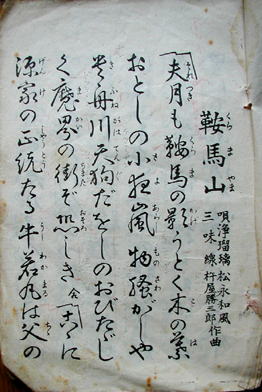 鞍馬山
唄浄瑠璃 松永和風
三味線 杵屋勝三郎 作曲
夫月も鞍馬の影うとく木の葉
おとしの小夜嵐物騒がしや
貴舟川天狗だをしのおびたゞし
く魔界の街ぞ恐しき 合 こゝに
源家の正統たる牛若丸は父の